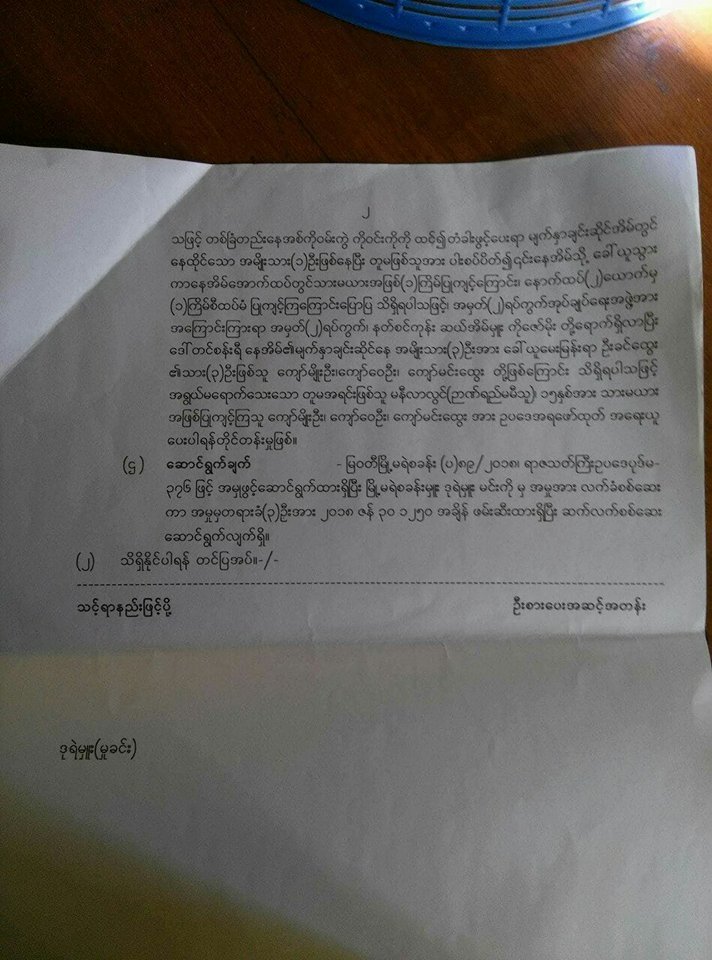 ၂
သဖြင့် တစ်ခြံတည်းနေအစ်ကိုဝမ်းကွဲ ကိုဝင်းကိုကို ထင်၍တံခါးဖွင့်ပေးရာ မျက်နှာချင်းဆိုင်အိမ်တွင်
နေထိုင်သော အမျိုးသား(၁)ဦးဖြစ်နေပြီး တူမဖြစ်သူအား ပါးစပ်ပိတ်၍၎င်းနေအိမ်သို့ ခေါ်ယူသွား
ကာနေအိမ်အောက်ထပ်တွင်သားမယားအဖြစ်(၁)ကြိမ်ပြုကျင့်ကြောင်း၊ နောက်ထပ်(၂)ယောက်မှ
(၁)ကြိမ်စီထပ်မံ ပြုကျင့်ကြကြောင်းပြောပြ သိရှိရပါသဖြင့်၊ အမှတ်(၂)ရပ်ကွက်အုပ်ချုပ်ရေးအဖွဲ့အား
အကြောင်းကြားရာ အမှတ်(၂)ရပ်ကွက်၊ နတ်စင်ကုန်း ဆယ်အိမ်မှူး ကိုဇော်မိုး တို့ရောက်ရှိလာပြီး
ဒေါ်တင်စန်းရီ နေအိမ်၏မျက်နှာချင်းဆိုင်နေ အမျိုးသား(၃)ဦးအား ခေါ်ယူမေးမြန်းရာ ဦးခင်ထွေး
၏သား(၃)ဦးဖြစ်သူ ကျော်မျိုးဦး၊ကျော်ဝေဦး၊ ကျော်မင်းထွေး တို့ဖြစ်ကြောင်း သိရှိရပါသဖြင့်
အရွယ်မရောက်သေးသော တူမအရင်းဖြစ်သူ မနီလာလွင်(ဉာဏ်ရည်မမီသူ) ၁၅နှစ်အား သားမယား
အဖြစ်ပြုကျင့်ကြသူ ကျော်မျိုးဦး၊ ကျော်ဝေဦး၊ ကျော်မင်းထွေး အား ဥပဒေအရဖော်ထုတ် အရေးယူ
ပေးပါရန်တိုင်တန်းမှုဖြစ်။
(ဌ) ဆောင်ရွက်ချက် - မြဝတီမြို့မရဲစခန်း (ပ)၈၉/၂၀၁၈၊ ရာဇသတ်ကြီးဥပဒေပုဒ်မ-
၃၇၆ ဖြင့် အမှုဖွင့်ဆောင်ရွက်ထားရှိပြီး မြို့မရဲစခန်းမှူး ဒုရဲမှူး မင်းကို မှ အမှုအား လက်ခံစစ်ဆေး
ကာ အမှုမှတရားခံ(၃)ဦးအား ၂၀၁၈ ဇန် ၃၀ ၁၂၅၀ အချိန် ဖမ်းဆီးထားရှိပြီး ဆက်လက်စစ်ဆေး
ဆောင်ရွက်လျက်ရှိ။
(၂) သိရှိနိုင်ပါရန် တင်ပြအပ်။-/-
သင့်ရာနည်းဖြင့်ပို့ ဦးစားပေးအဆင့်အတန်း
ဒုရဲမှူး(မှုခင်း)